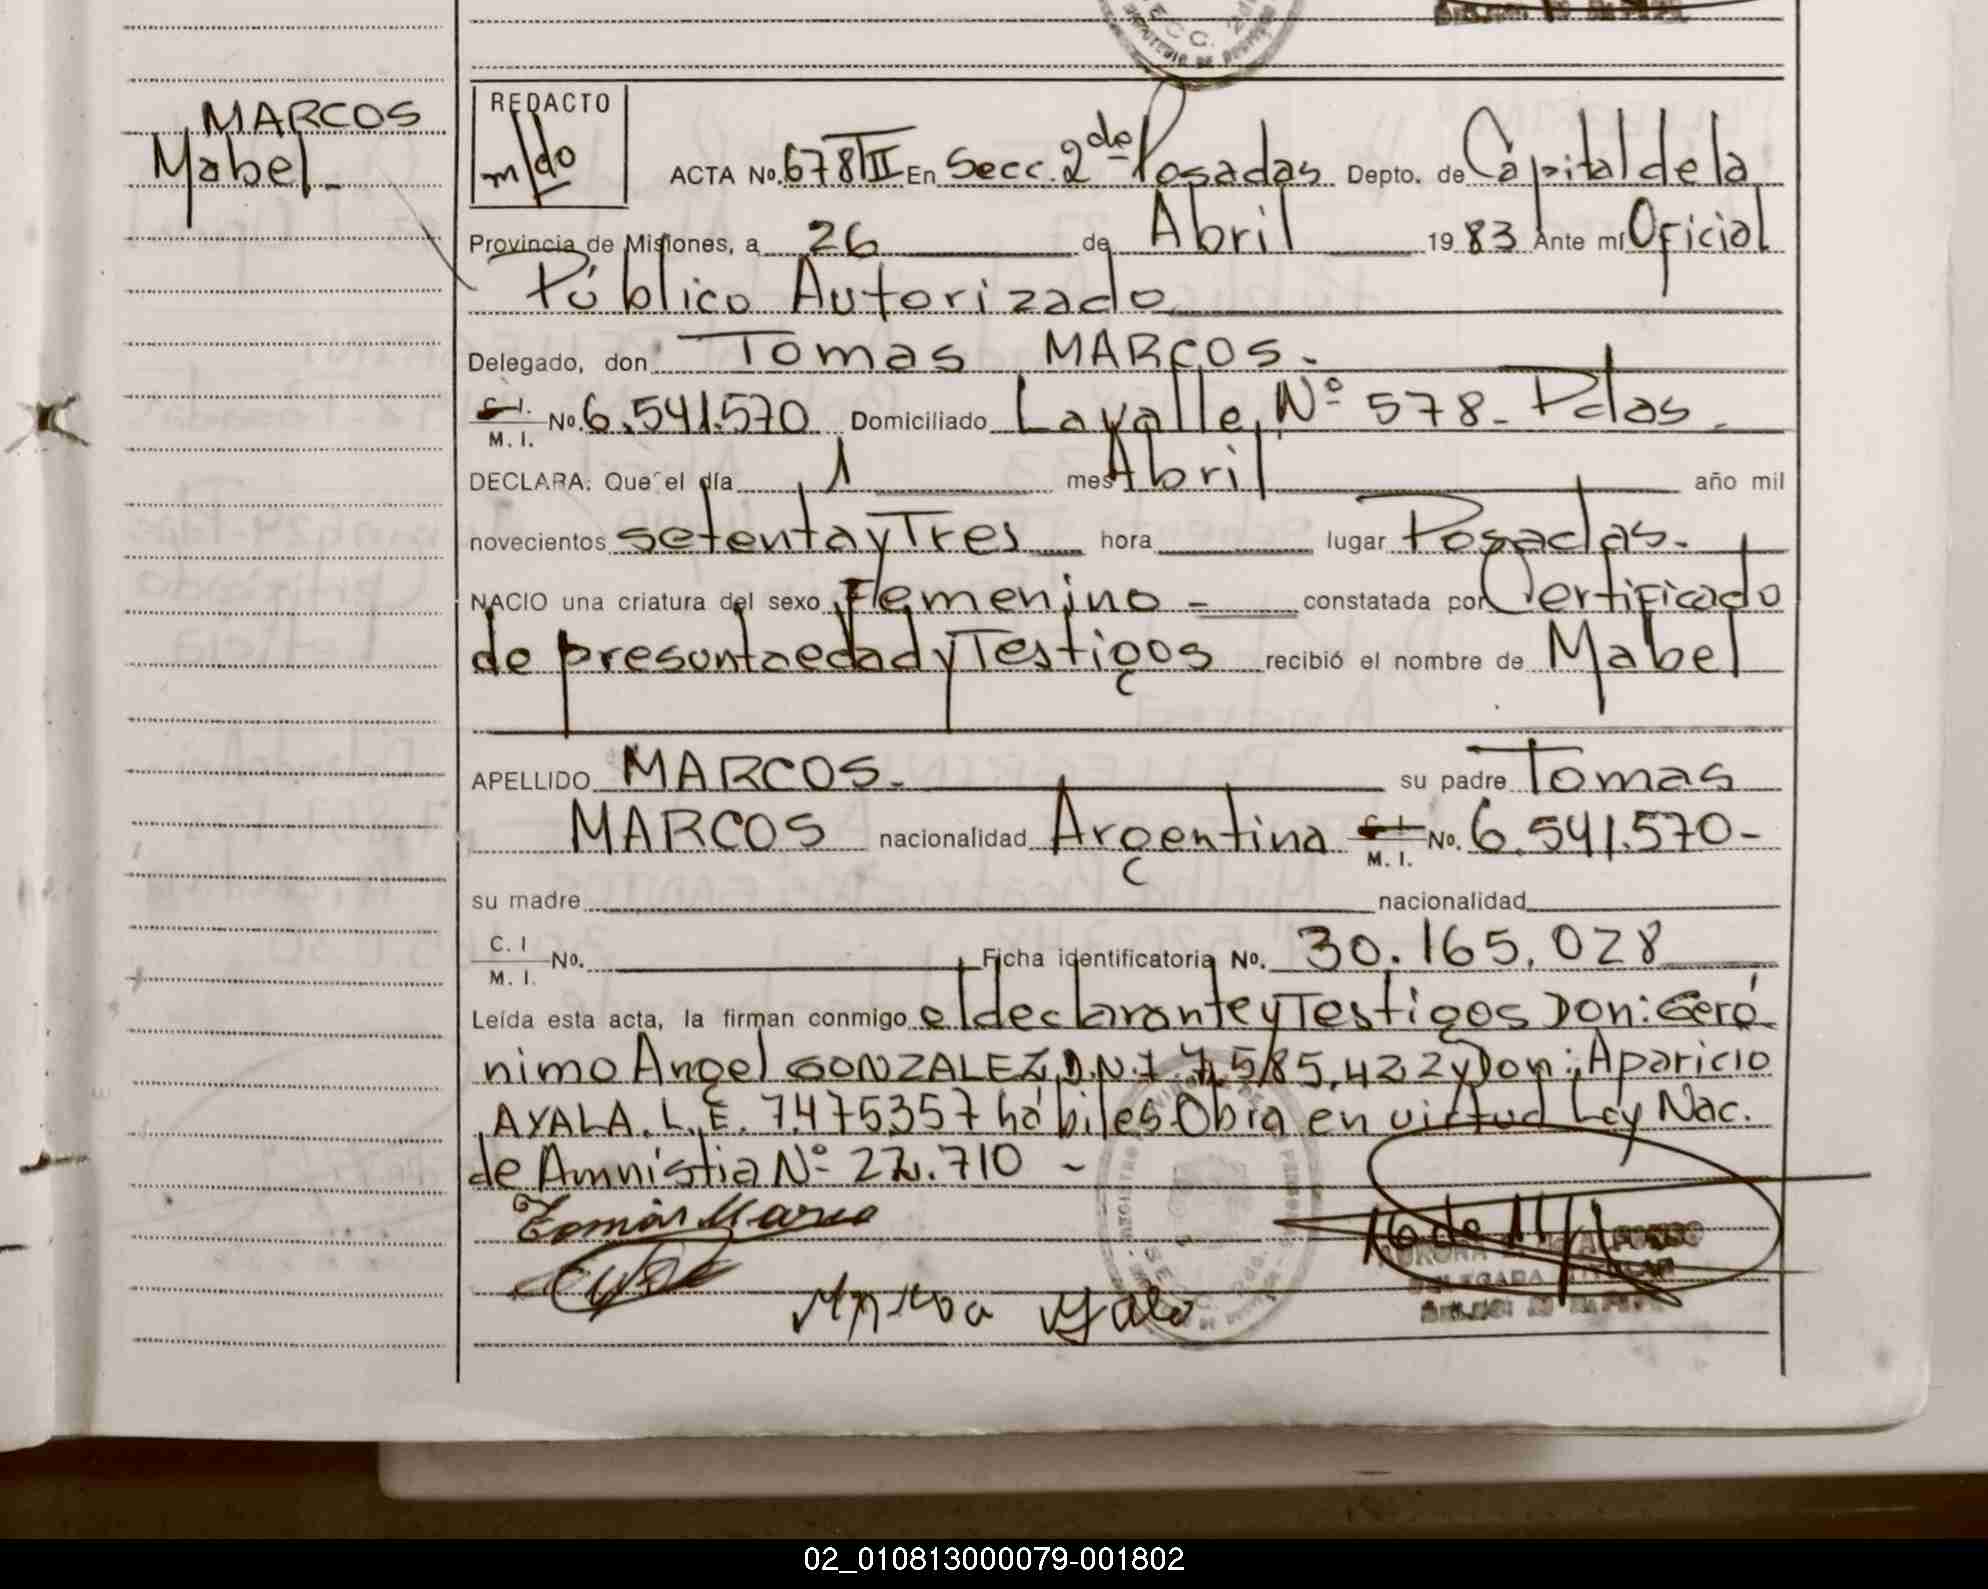 MARCOS
Mabel-
REDACTO
m/do
ACTA No. 678 TII En Secc. 2da de Posadas Depto. de Capital de la
Provincia de Misiones, a 26 de Abril 1983 Ante mí Oficial
Público Autorizado
Delegado, don Tomas MARCOS.
C. I. M. I. No. 6.541.570 Domiciliado Lavalle, Nº 578- Pdas.
DECLARA: Que el día 1 mes Abril año mil
novecientos setenta y Tres hora lugar Posadas.
NACIO una criatura del sexo Femenino - constatada por Certificado
de presunta edad y Testigos recibió el nombre de Mabel
APELLIDO MARCOS- su padre Tomas
MARCOS nacionalidad Argentina C. I. M. I. No. 6.541.570-
su madre nacionalidad
C. I M. I. No. Ficha identificatoria No. 30.165.028
Leída esta acta, la firman conmigo el declarante y Testigos Don: Geró
nimo Angel GONZALEZ, D.N.I. 7.585.422 y Don: Aparicio
AYALA. L.E. 7.475357 hábiles. Obra en virtud Ley Nac.
de Amnistia Nº 22.710 -
Tomás Marco
02_010813000079-001802